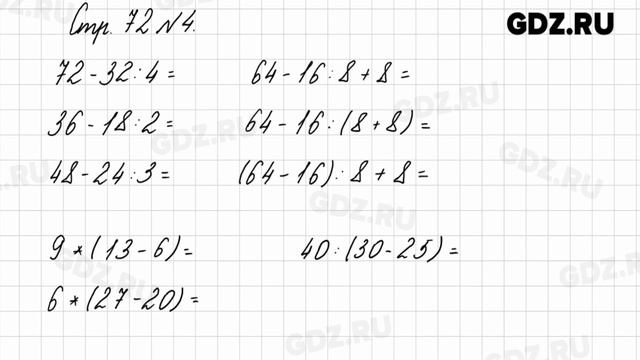 Стр. 72 №4.
GDZ.RU
72-32:4=
64-16:8+8=
36-18:2=
64-16:(8+8)=
48-24:3=
(64-16):8+8=
9*(13-6)=
40:(30-25)=
6*(27-20)=
GDZ.RU
GDZ.RU
GDZ.RU
GDZ.RU
GDZ.RU
GDZ.RU
GDZ.RU
GDZ.RU